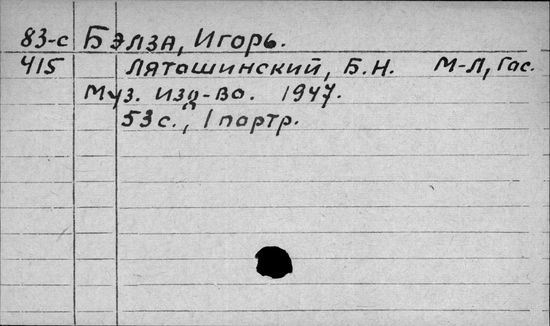 83-с Бэлза, Игорь.
415 Ляташинский, Б.Н. М-Л, Гас.
Муз. изд-во. 1947.
53 с., 1 портр.